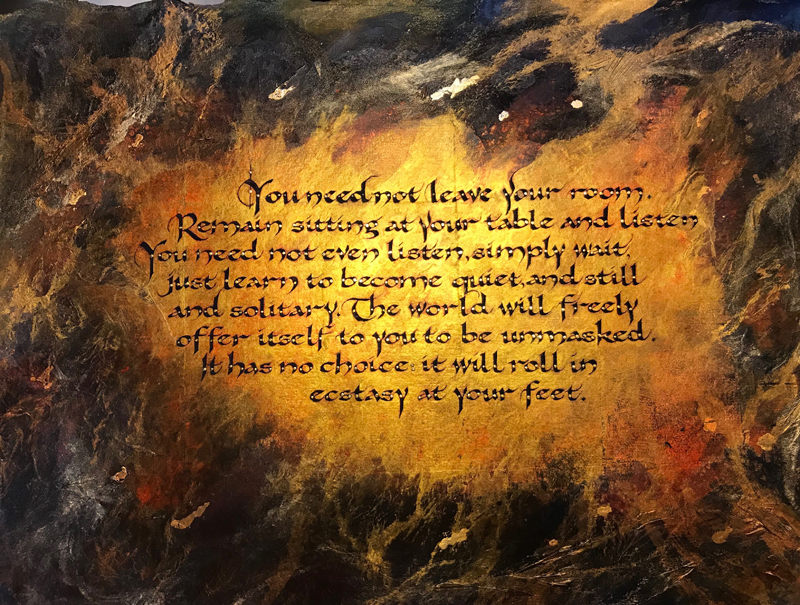 You need not leave your room.
Remain sitting at your table and listen
You need not even listen, simply wait,
just learn to become quiet, and still
and solitary. The world will freely
offer itself to you to be unmasked.
It has no choice: it will roll in
ecstasy at your feet.